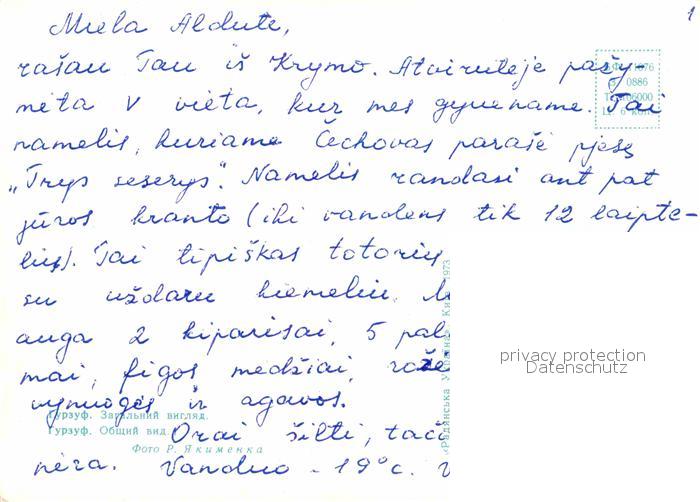 1
Miela Aldute,
rašau Tau iš Krymo. Atvirutėje pažy-
mėta V vieta, kur mes gyvename. Tai
namelis, kuriame Čechovas parašė pjesę
„Trys seserys". Namelis randasi ant pat
jūros kranto (iki vandens tik 12 laipte-
lių). Tai tipiškas totorių
su uždaru kiemeliu.
auga 2 kiparisai, 5 pal
mai, figos medžiai, rože
vynuogės ir agavos.
Гурзуф. Загальний вигляд.
Гурзуф. Общий вид.
Фото Р. Якименка
Orai šilti, tači
nėra. Vanduo - 19°c. V
«Радянська Україна» Київ 1973
0886
privacy protection
Datenschutz